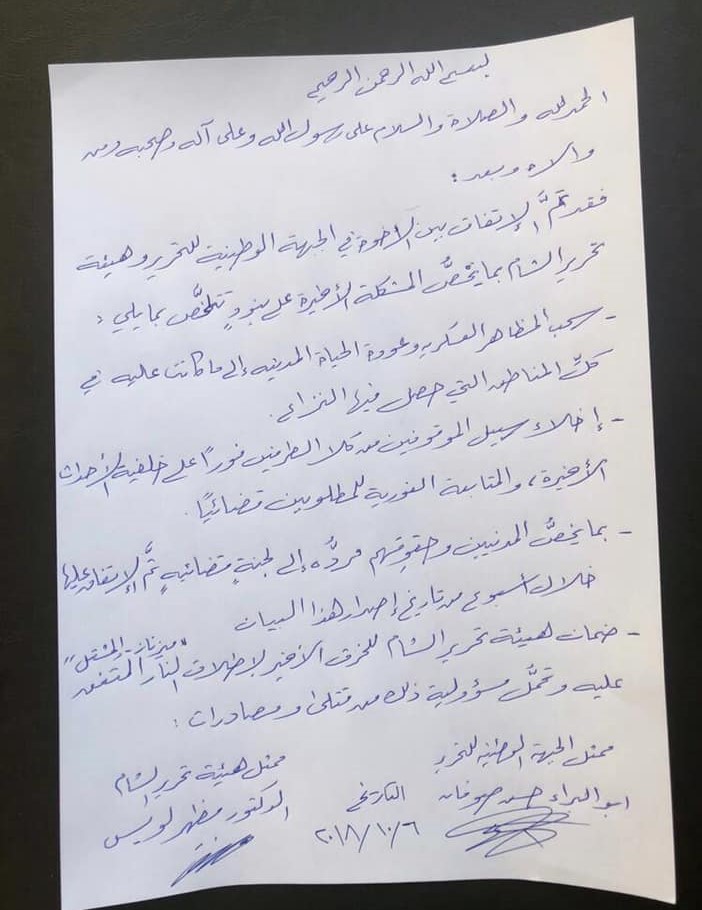 بسم الله الرحمن الرحيم
الحمد لله والصلاة والسلام على رسول الله وعلى آله وصحبه ومن
والاه وبعد :
فقد تمَّ الإتفاق بين الاخوة في الجبهة الوطنية للتحرير وهيئة
تحرير الشام بما يخصُّ المشكلة الأخيرة على بنودٍ تتلخَّص بما يلي :
- سحب المظاهر العسكرية وعودة الحياة المدنية إلى ما كانت عليه في
كلِّ المناطق التي حصل فيها النزاع .
- إخلاء سبيل الموقوفين من كلا الطرفين فوراً على خلفية الأحداث
الأخيرة ، والمتابعة الفورية للمطلوبين قضائياً .
- بما يخصُّ المدنيين وحقوقهم مردُّه إلى لجنةٍ قضائيةٍ تمَّ الإتفاق عليها
خلال أسبوع من تاريخ إصدار هذا البيان
"ميزناز - المشتل"
- ضمان هيئة تحرير الشام للخرق الأخير لإطلاق النار المتفق
عليه وتحمُّل مسؤولية ذلك من قتلى ومصادرات :
ممثل الجبهة الوطنية للتحرير
ممثل هيئة تحرير الشام
ابو البراء حسن صوفان
التاريخ
الدكتور مظهر لويس
٢٠١٨/١٠/٦